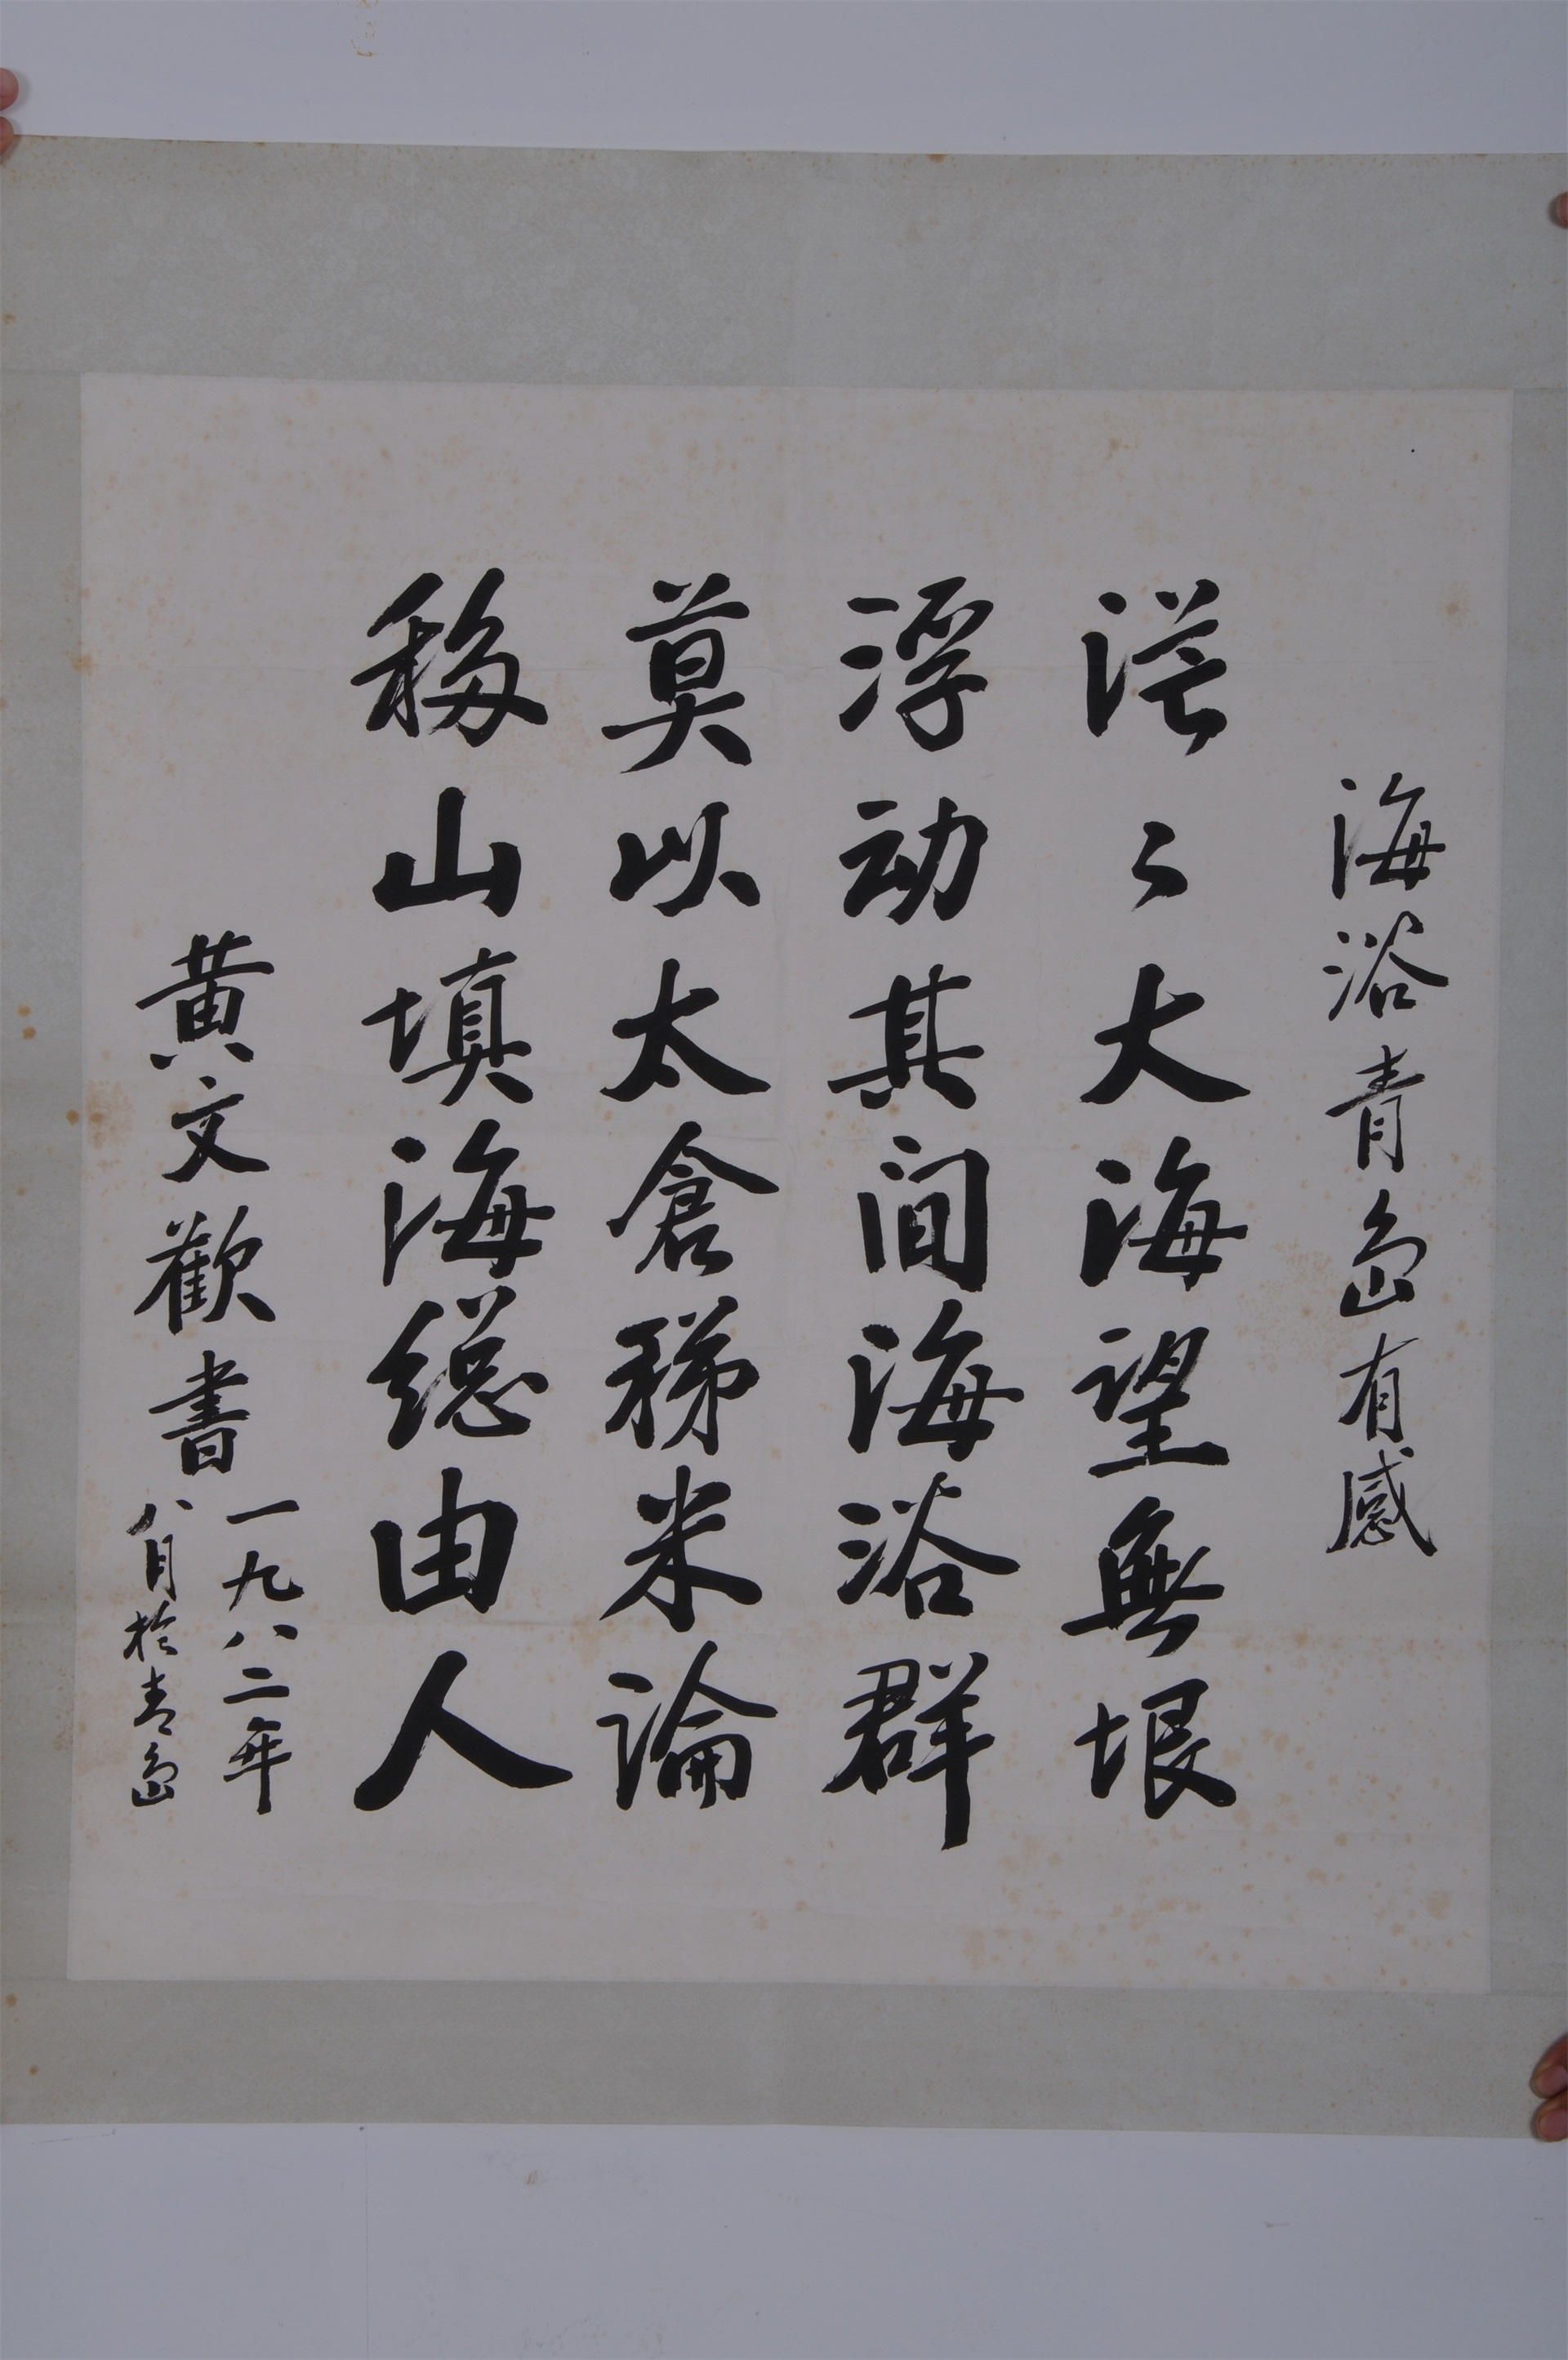 海浴青島有感
茫々大海望無垠
浮动其间海浴群
莫以太倉稊米論
移山填海総由人
黄文歡書
一九八二年
八月於青島